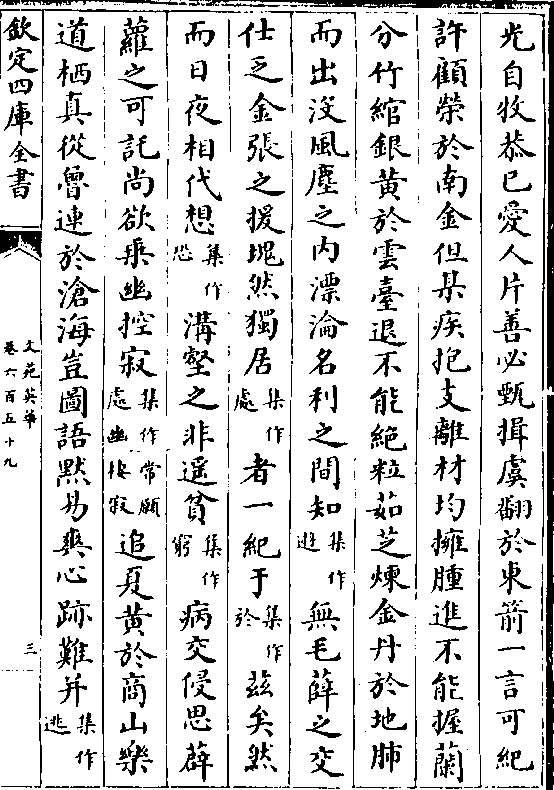 光自牧恭已愛人片善必甄揖虞翻於東箭一言可紀
許顧榮於南金但某疾抱支離材均擁腫進不能握蘭
分竹綰銀黃於雲臺退不能絶粒茹芝煉金丹於地肺
而出没風塵之内漂淪名利之間知集作逝無毛薛之交
仕乏金張之援塊然獨居集作處者一紀于集作於兹矣然
而日夜相代想集作恐溝壑之非遥貧集作窮病交侵思薜
蘿之可託尚欲乗幽控寂集作常願處幽棲寂追夏黄於商山樂
道栖真從魯連於滄海豈圖語黙易爽心跡難并集作逃
欽定四庫全書
文苑英華
卷六百五十九
三